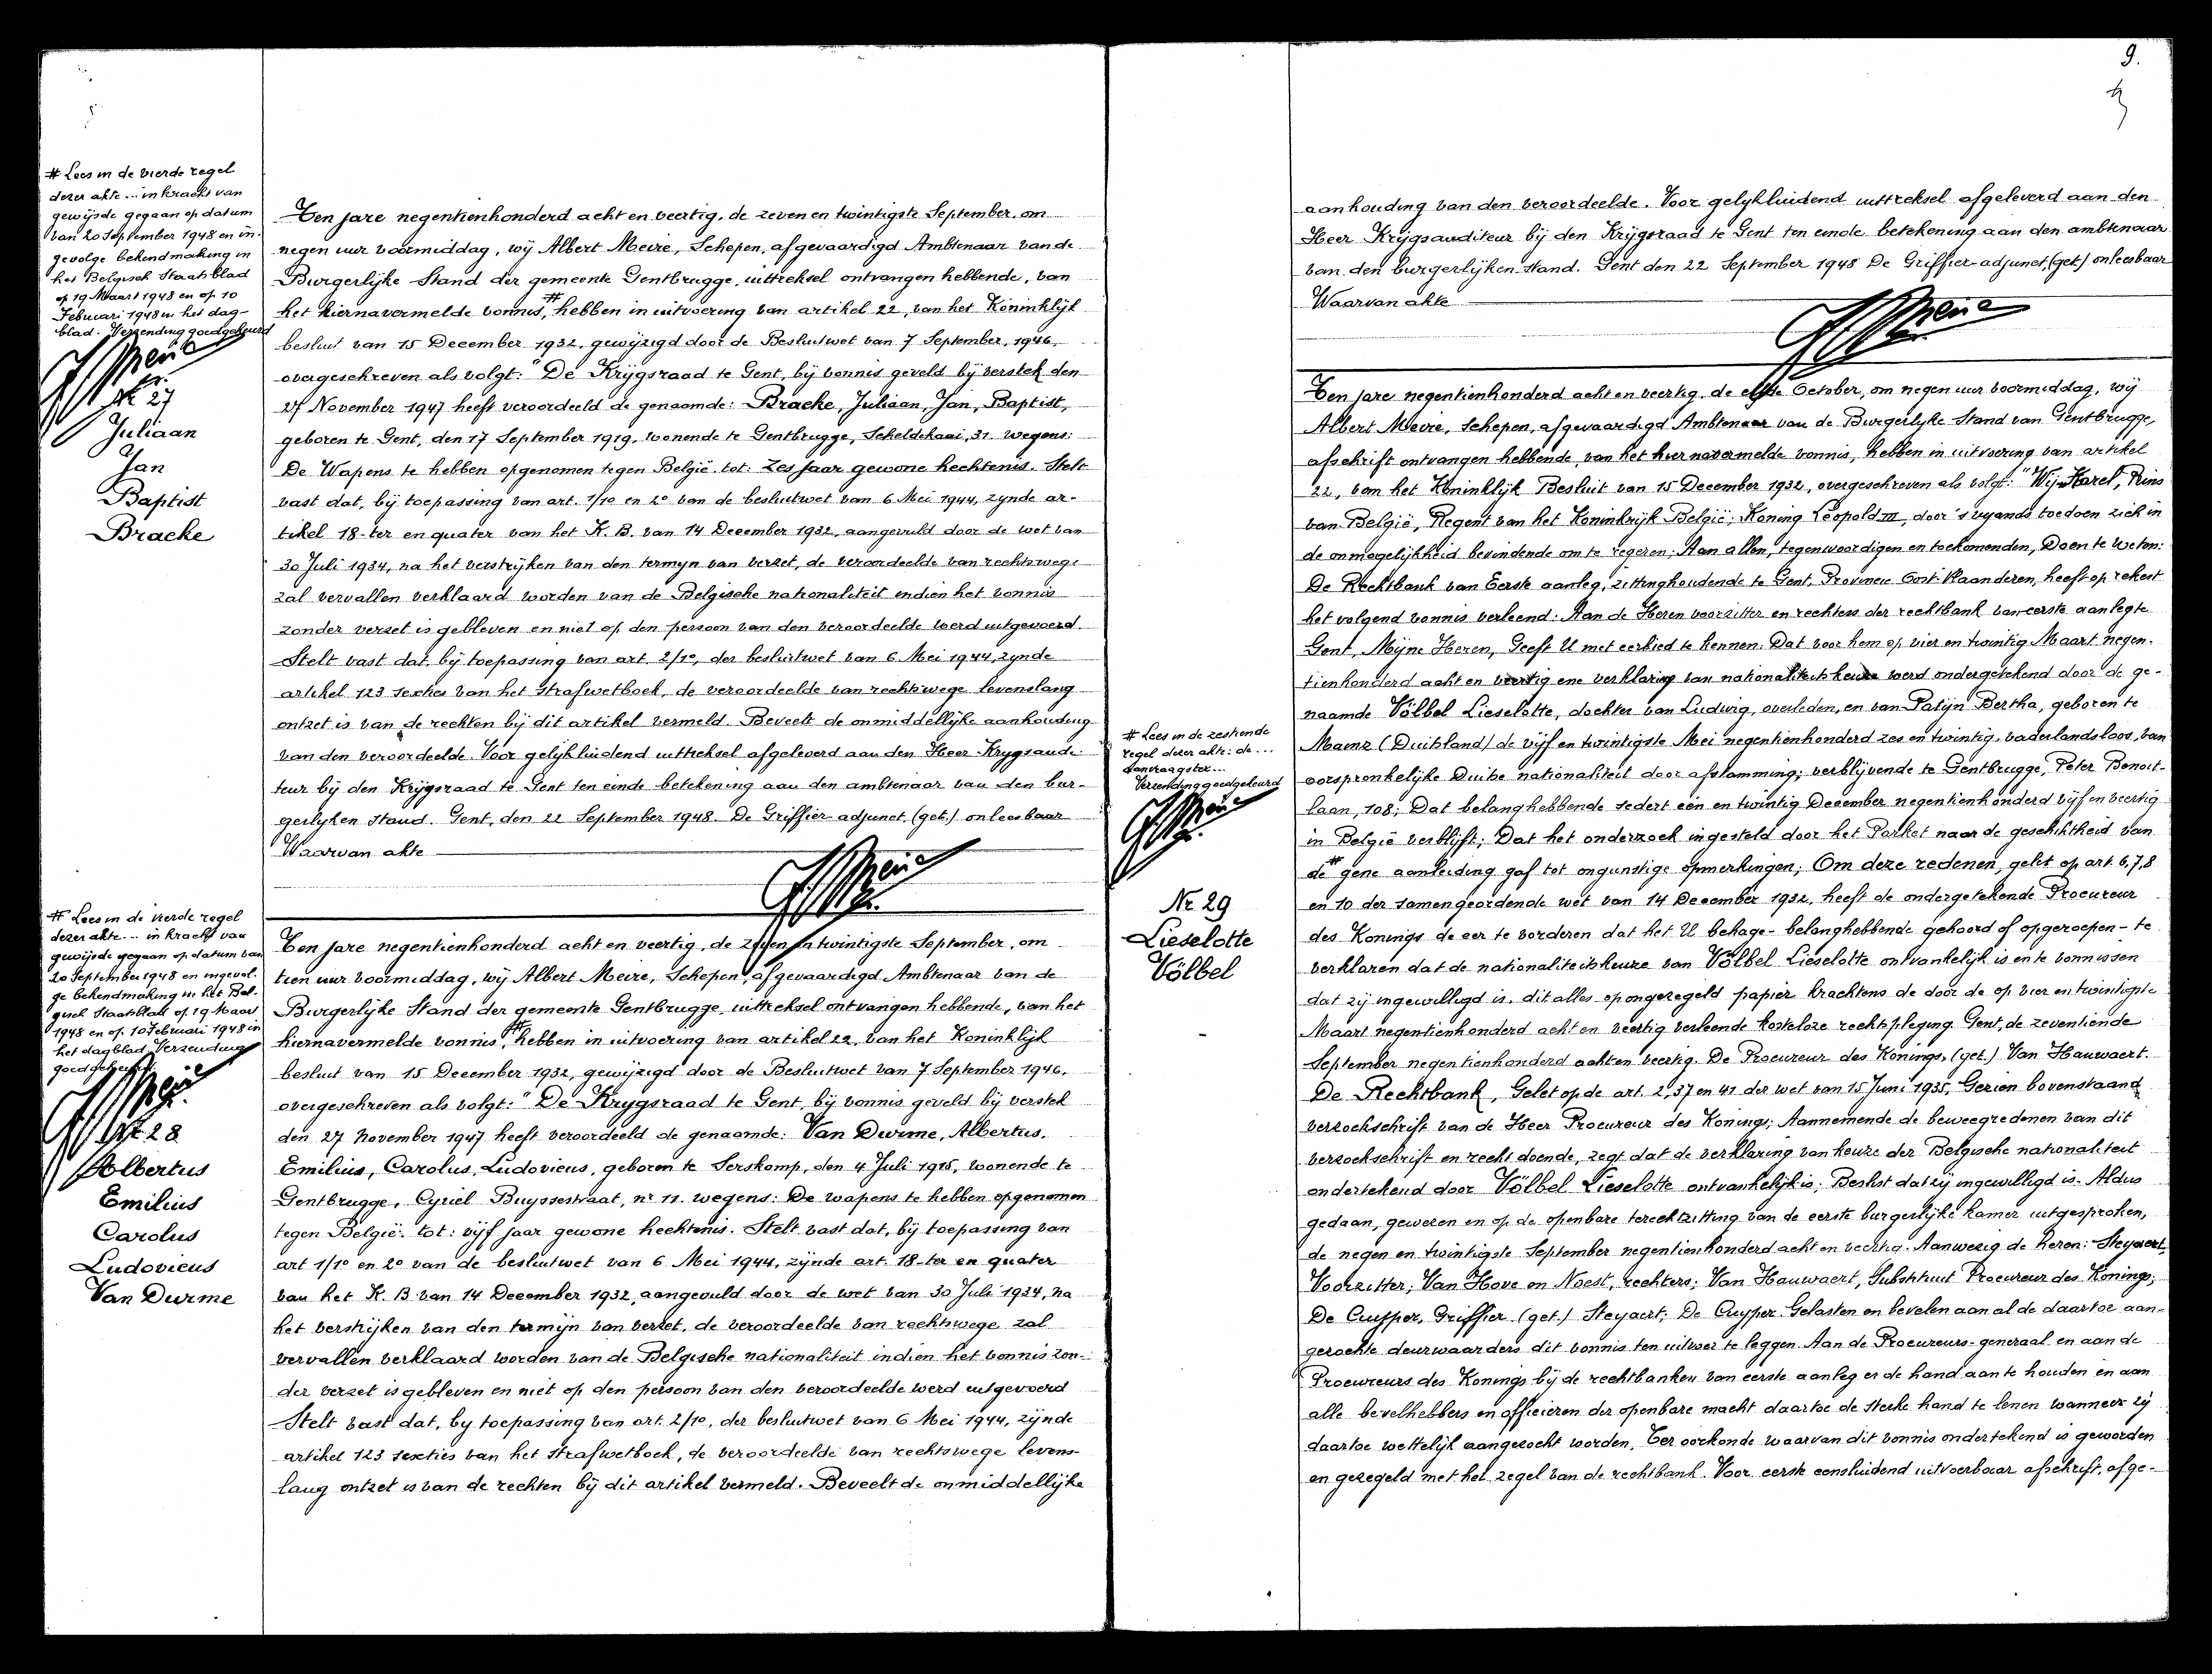 # Lees in de vierde regel
dezer akte ... in kracht van
gewijsde gegaan op datum
van 20 September 1948 en in
gevolge bekendmaking in
het Belgisch Staatsblad
op 19 Maart 1948 en op 10
Februari 1948 in het dag-
blad. Verzending goedgekeurd
Nr. 27
Juliaan
Jan
Baptist
Bracke
Ten jare negentienhonderd acht en veertig, de zeven en twintigste September, om
negen uur voormiddag, wij Albert Meire, Schepen, afgevaardigd Ambtenaar van de
Burgerlijke Stand der gemeente Gentbrugge, uittreksel ontvangen hebbende, van
het hiernavermelde vonnis,# hebben in uitvoering van artikel 22, van het Koninklijk
besluit van 15 December 1932, gewijzigd door de Besluitwet van 7 September, 1946,
overgeschreven als volgt: "De Krijgsraad te Gent, bij vonnis geveld bij verstek den
27 November 1947 heeft veroordeeld de genaamde: Bracke, Juliaan, Jan, Baptist,
geboren te Gent, den 17 September 1919, wonende te Gentbrugge, Scheldekaai, 31. wegens:
De Wapens te hebben opgenomen tegen België. tot: Zes jaar gewone hechtenis. Stelt
vast dat, bij toepassing van art. 1/1° en 2° van de besluitwet van 6 Mei 1944, zynde ar-
tikel 18-ter en quater van het K. B. van 14 December 1932, aangevuld door de wet van
30 Juli 1934, na het verstrijken van den termyn van verzet, de veroordeelde van rechtswege
zal vervallen verklaard worden van de Belgische nationaliteit indien het vonnis
zonder verzet is gebleven en niet op den persoon van den veroordeelde werd uitgevoerd.
Stelt vast dat, bij toepassing van art 2/1°, der besluitwet van 6 Mei 1944, zynde
artikel 123 sexties van het strafwetboek, de veroordeelde van rechtswege levenslang
ontzet is van de rechten bij dit artikel vermeld. Beveelt de onmiddellijke aanhouding
van den veroordeelde. Voor gelijkluidend uittreksel afgeleverd aan den Heer Krygsaudi-
teur bij den Krijgsraad te Gent ten einde betekening aan den ambtenaar van den bur-
gerlyken stand. Gent, den 22 September 1948. De Griffier-adjunct, (get.) onleesbaar
Waarvan akte
# Lees in de vierde regel
dezer akte ... in kracht van
gewijsde gegaan op datum van
20 September 1948 en ingevol-
ge bekendmaking in het Bel-
gisch Staatsblad op 19 Maart
1948 en op 10 Februari 1948 in
het dagblad. Verzending
goedgekeurd
Nr 28
Albertus
Emilius
Carolus
Ludovicus
Van Durme
Ten jare negentienhonderd acht en veertig, de zeven en twintigste September, om
tien uur voormiddag, wij Albert Meire, Schepen, afgevaardigd Ambtenaar van de
Burgerlijke Stand der gemeente Gentbrugge, uittreksel ontvangen hebbende, van het
hiernavermelde vonnis,# hebben in uitvoering van artikel 22, van het Koninklijk
besluit van 15 December 1932, gewijzigd door de Besluitwet van 7 September 1946,
overgeschreven als volgt: "De Krygsraad te Gent, bij vonnis geveld bij verstek
den 27 November 1947 heeft veroordeeld de genaamde: Van Durme, Albertus,
Emilius, Carolus, Ludovicus, geboren te Serskamp, den 4 Juli 1915, wonende te
Gentbrugge, Cyriel Buyssestraat, nr 11. wegens: De wapens te hebben opgenomen
tegen België. tot: vijf jaar gewone hechtenis. Stelt vast dat, bij toepassing van
art 1/1° en 2° van de besluitwet van 6 Mei 1944, zijnde art. 18-ter en quater
van het K. B. van 14 December 1932, aangevuld door de wet van 30 Juli 1934, na
het verstrijken van den termijn van verzet, de veroordeelde van rechtswege zal
vervallen verklaard worden van de Belgische nationaliteit indien het vonnis zon-
der verzet is gebleven en niet op den persoon van den veroordeelde werd uitgevoerd
Stelt vast dat, by toepassing van art. 2/1°, der besluitwet van 6 Mei 1944, zijnde
artikel 123 sexties van het strafwetboek, de veroordeelde van rechtswege levens-
lang ontzet is van de rechten bij dit artikel vermeld. Beveelt de onmiddellijke
9.
aanhouding van den veroordeelde. Voor gelykluidend uittreksel afgeleverd aan den
Heer Krijgsauditeur bij den Krijgsraad te Gent ten einde betekening aan den ambtenaar
van den burgerlijken stand. Gent den 22 September 1948 De Griffier-adjunct, (get.) onleesbaar
Waarvan akte
# Lees in de zestiende
regel dezer akte: de ...
aanvraagster...
Verzending goedgekeurd
Nr 29
Lieselotte
Völbel
Ten jare negentienhonderd acht en veertig, de elfde October, om negen uur voormiddag, wij
Albert Meire, Schepen, afgevaardigd Ambtenaar van de Burgerlyke Stand van Gentbrugge,
afschrift ontvangen hebbende, van het hiernavermelde vonnis, hebben in uitvoering van artikel
22, van het Koninklijk Besluit van 15 December 1932, overgeschreven als volgt: "Wij Karel, Prins
van België, Regent van het Koninkrijk België; Koning Leopold III, door 's vyands toedoen zich in
de onmogelijkheid bevindende om te regeren; Aan allen, tegenwoordigen en toekomenden, Doen te weten:
De Rechtbank van Eerste aanleg, zittinghoudende te Gent, Provincie Oost-Vlaanderen, heeft op rekest
het volgend vonnis verleend: Aan de Heren voorzitter en rechters der rechtbank van eerste aanleg te
Gent, Mijne Heren, Geeft U met eerbied te kennen: Dat voor hem op vier en twintig Maart negen-
tienhonderd acht en veertig ene verklaring van nationaliteitskeuze werd ondergetekend door de ge-
naamde Völbel Lieselotte, dochter van Ludwig, overleden, en van Patijn Bertha, geboren te
Mainz (Duitsland) de vijf en twintigste Mei negentienhonderd zes en twintig, vaderlandsloos, van
oorspronkelijke Duitse nationaliteit door afstamming; verblijvende te Gentbrugge, Peter Benoit-
laan, 108; Dat belanghebbende sedert een en twintig December negentienhonderd vijf en veertig
in België verblijft; Dat het onderzoek ingesteld door het Parket naar de geschiktheid van
de # gene aanleiding gaf tot ongunstige opmerkingen; Om deze redenen, gelet op art. 6,7,8
en 10 der samengeordende wet van 14 December 1932, heeft de ondergetekende Procureur
des Konings de eer te vorderen dat het U behage - belanghebbende gehoord of opgeroepen - te
verklaren dat de nationaliteitskeuze van Völbel Lieselotte ontvankelijk is en te vonnissen
dat zij ingewilligd is, dit alles op ongezegeld papier krachtens de door de op vier en twintigste
Maart negentienhonderd acht en veertig verleende kosteloze rechtspleging. Gent, de zeventiende
September negentienhonderd acht en veertig. De Procureur des Konings, (get.) Van Hauwaert.
De Rechtbank, Gelet op de art. 2, 37 en 41 der wet van 15 Juni 1935, Gezien bovenstaand
verzoekschrift van de Heer Procureur des Konings; Aannemende de beweegredenen van dit
verzoekschrift en recht doende, zegt dat de verklaring van keuze der Belgische nationaliteit
ondertekend door Völbel Lieselotte ontvankelijk is; Beslist dat zij ingewilligd is. Aldus
gedaan, gewezen en op de openbare terechtzitting van de eerste burgerlijke kamer uitgesproken,
de negen en twintigste September negentienhonderd acht en veertig. Aanwezig de heren: Steyaert,
Voorzitter; Van Hove en Noest, rechters; Van Hauwaert, Substituut Procureur des Konings;
De Cuyper, Griffier (get.) Steyaert; De Cuyper. Gelasten en bevelen aan al de daartoe aan-
gezochte deurwaarders dit vonnis ten uitvoer te leggen. Aan de Procureurs-generaal en aan de
Procureurs des Konings bij de rechtbanken van eerste aanleg er de hand aan te houden en aan
alle bevelhebbers en officieren der openbare macht daartoe de sterke hand te lenen wanneer zij
daartoe wettelijk aangezocht worden. Ter oorkonde waarvan dit vonnis ondertekend is geworden
en gezegeld met het zegel van de rechtbank. Voor eerste eensluidend uitvoerbaar afschrift, afge-